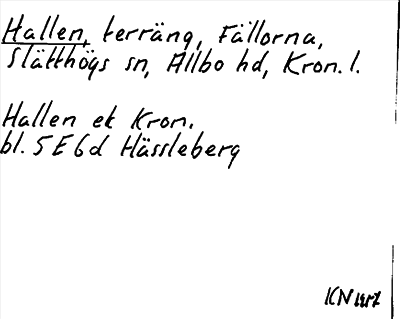 Hallen, terräng, Fällorna,
Slätthögs sn, Allbo hd, Kron. l.
Hallen ek Kron.
bl. 5E6d Hässleberg
KN